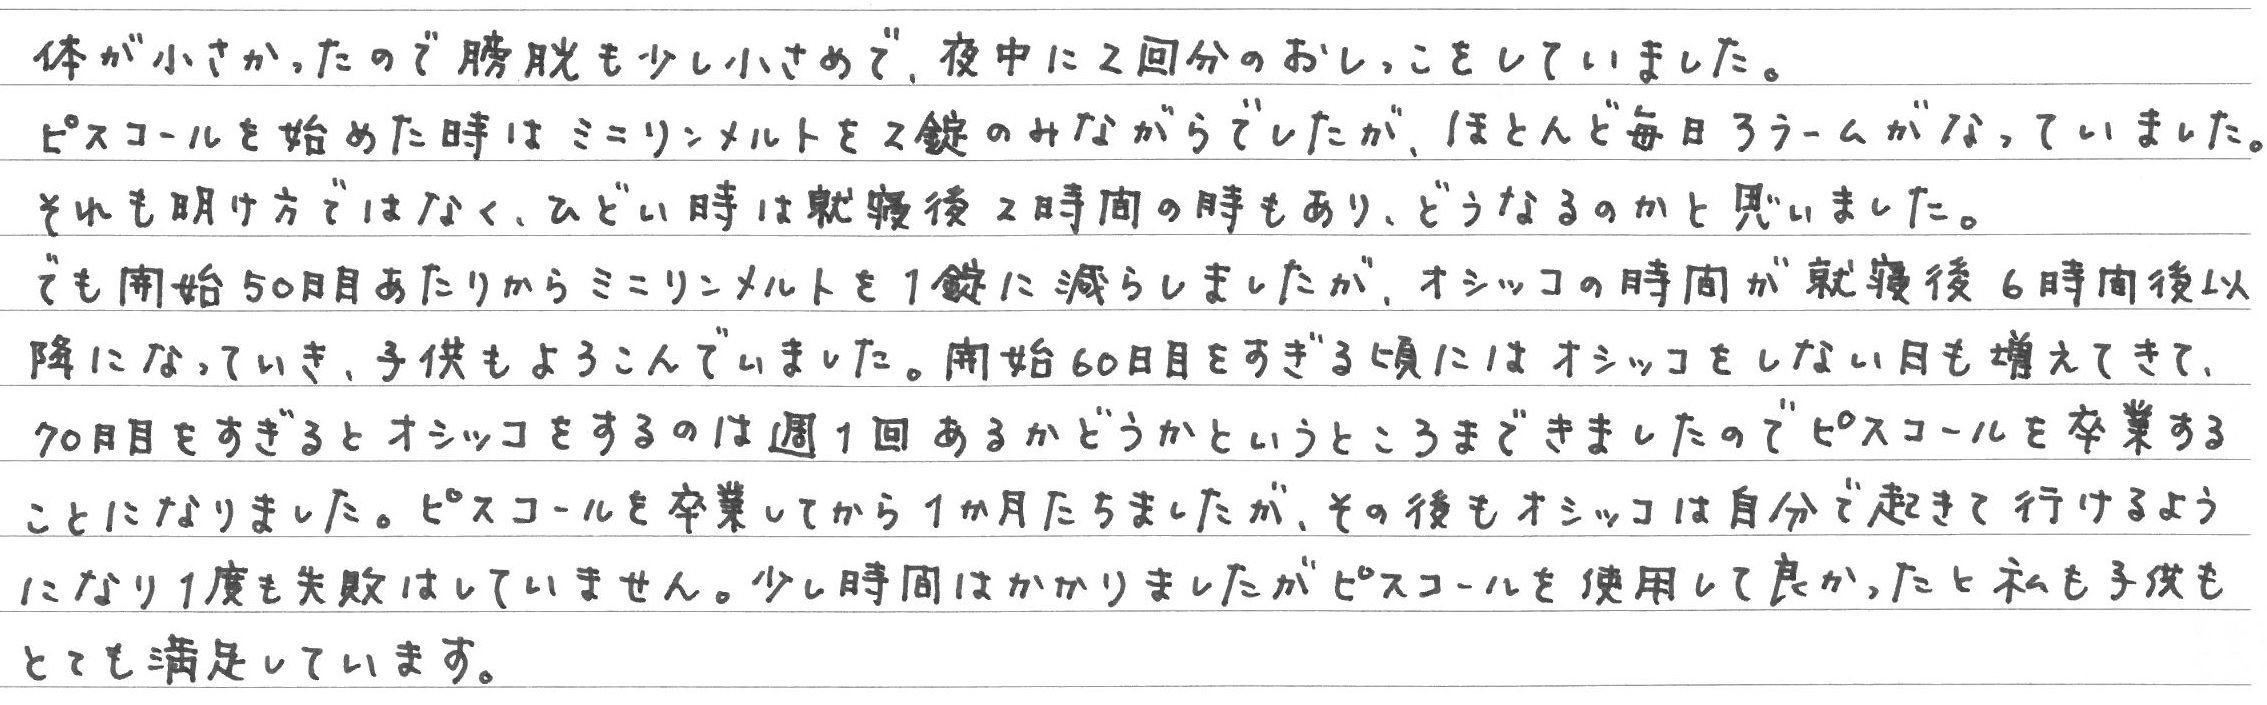 体が小さかったので膀胱も少し小さめで、夜中に2回分のおしっこをしていました。
ピスコールを始めた時はミニリンメルトを2錠のみながらでしたが、ほとんど毎日アラームがなっていました。
それも明け方ではなく、ひどい時は就寝後2時間の時もあり、どうなるのかと思いました。
でも開始50日目あたりからミニリンメルトを1錠に減らしましたが、オシッコの時間が就寝後6時間後以
降になっていき、子供もよろこんでいました。開始60日目をすぎる頃にはオシッコをしない日も増えてきて、
70日目をすぎるとオシッコをするのは週1回あるかどうかというところまできましたのでピスコールを卒業する
ことになりました。ピスコールを卒業してから1か月たちましたが、その後もオシッコは自分で起きて行けるよう
になり1度も失敗はしていません。少し時間はかかりましたがピスコールを使用して良かったと私も子供も
とても満足しています。